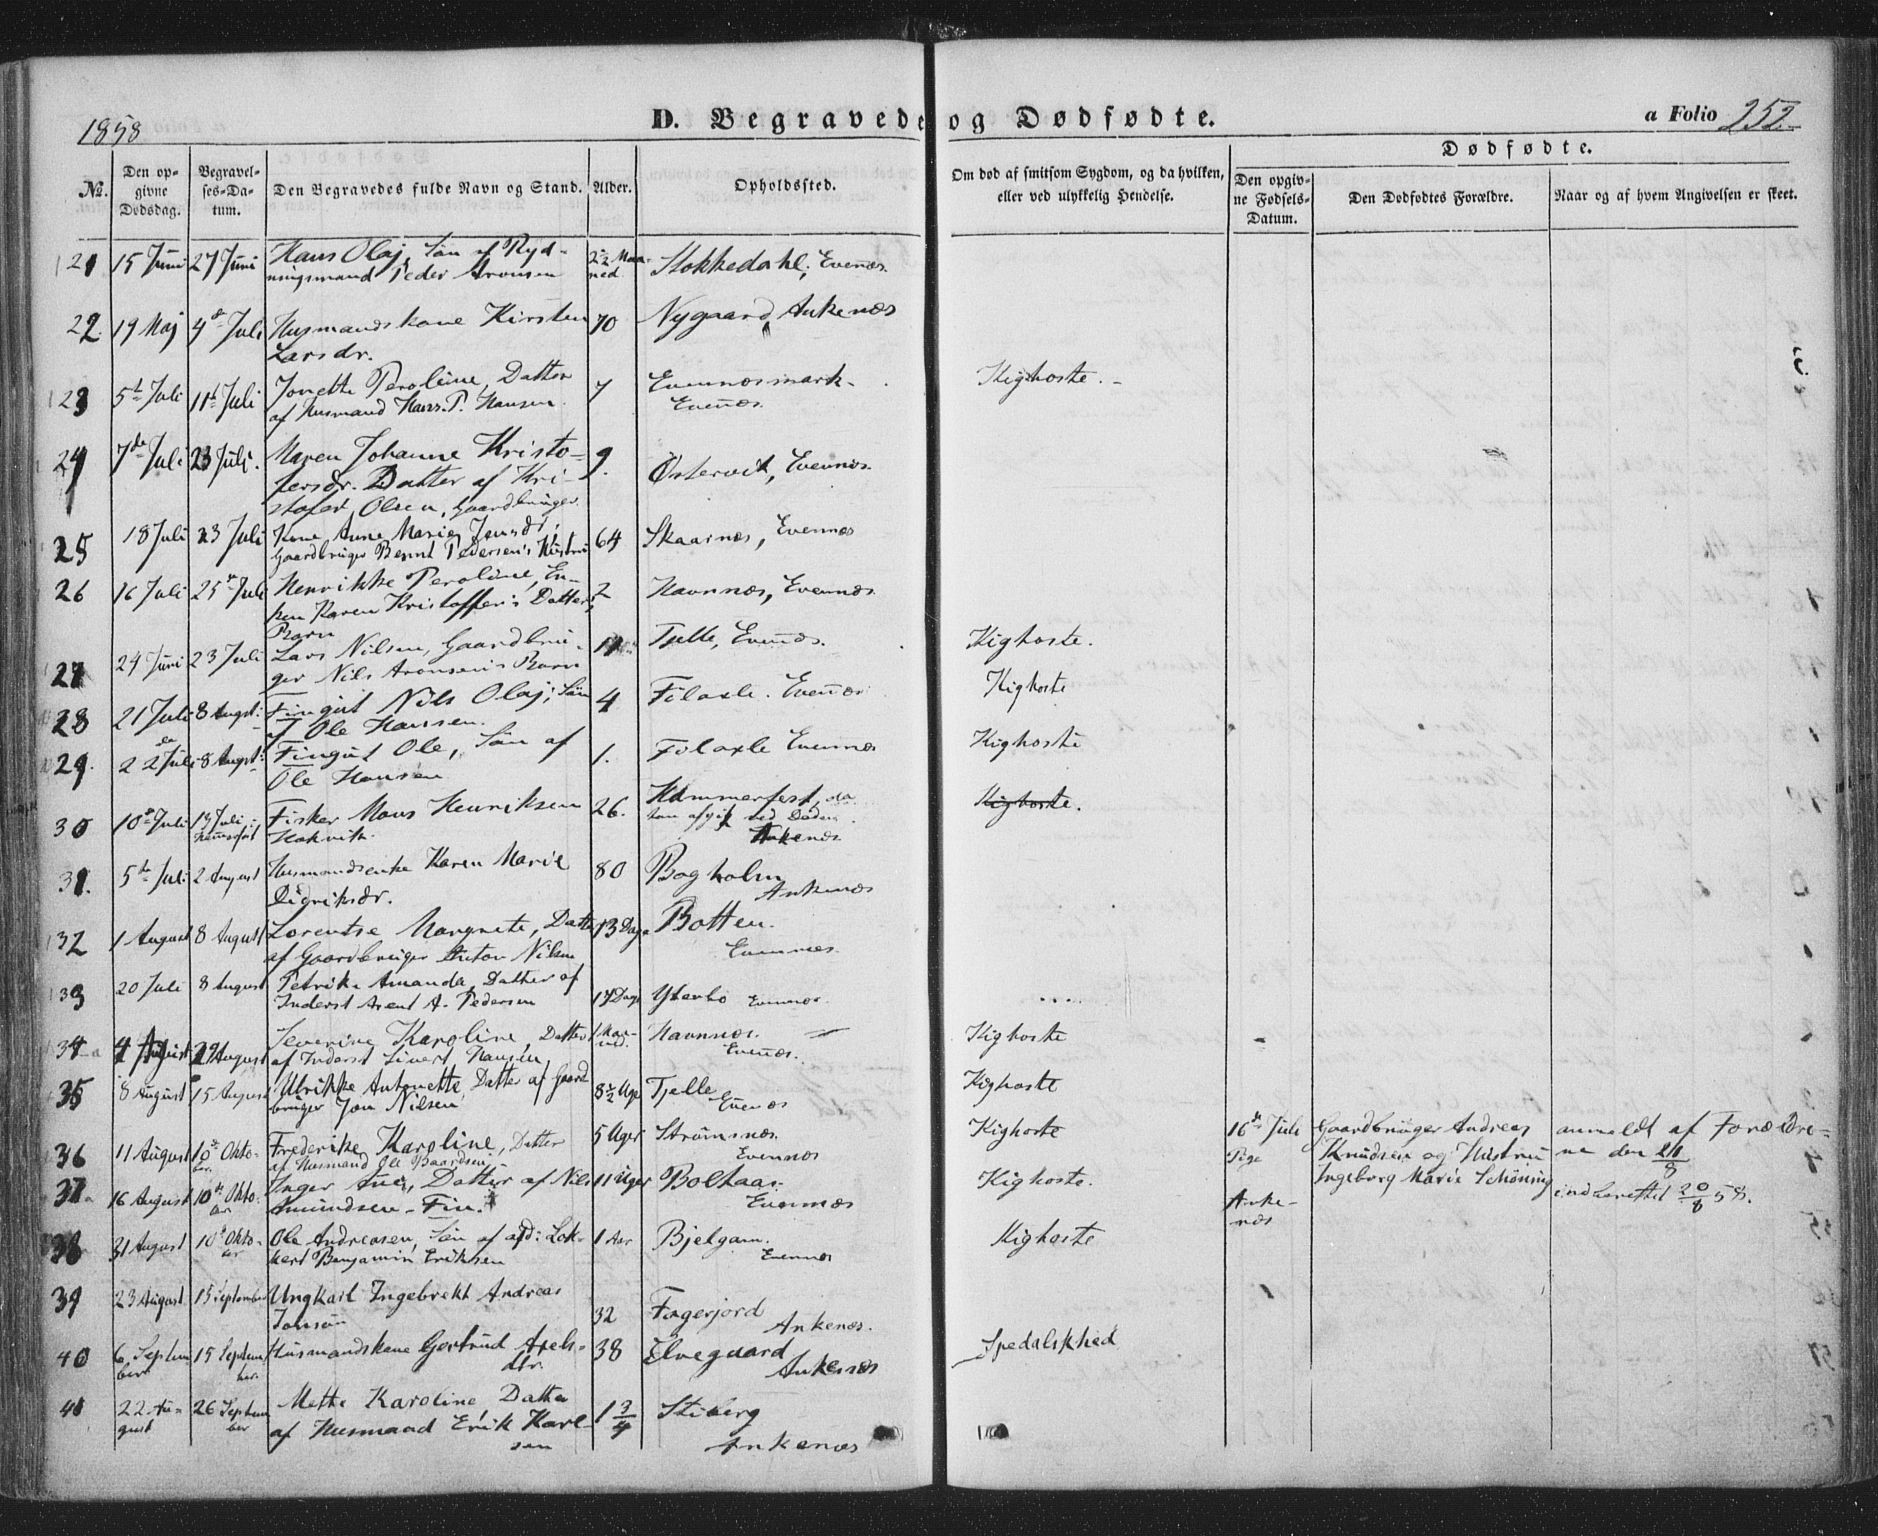 1858
D. Begravede og Dødfødte.
a Folio 252.
No.
Den opgivne Dødsdag.
Begravelses-Datum.
Den Begravedes fulde Navn og Stand.
Alder.
Opholdssted.
Om død af smitsom Sygdom, og da hvilken, eller ved ulykkelig Hendelse.
Dødfødte.
Den opgivne Fødsels-Datum.
Den Dødfødtes Forældre.
Naar og af hvem Angivelsen er skeet.
21 15 Juni 27 Juni Hans Olaj, Søn af Rydningsmand Peder Aronsen 2½ Maaned Stokkedahl, Evenæs
22. 19 Maj 4de Juli Husmandskone Kirsten Larsdr. 70 Nygaard, Ankenæs
23 5te Juli 11te Juli Jonette Peroline, Datter af Husmand Hans P. Hansen 7 Evenæsmark Evenæs. Kighoste.
24 7de Juli 23 Juli. Maren Johanne Kristofersdr. Datter af Kristofer Olsen, Gaardbruger 9. Østervik, Evenæs
25 18 Juli 23 Juli Kone Anne Marie Jensdr, Gaardbruger Bernt Pedersen's Hustru 64 Skaarnæs, Evenæs
26 16 Juli 25de Juli Henrikke Peroline, Enken Karen Kristoffer's Datters Barn 2 Havnnæs, Evenæs
27 24 Juni 23 Juli Lars Nilsen, Gaardbruger Nils Aronsen's Barn Tjelle, Evenæs. Kighoste.
28 21 Juli 8 August Fingut Nils Olaj, Søn af Ole Hansen. 4 Filaxle. Evenæs Kighoste
29. 22de Juli 8 August Fingut Ole, Søn af Ole Hansen 1. Filaxle Evenæs Kighoste
30 10de Juli 13 Juli Hammerfest Fisker Mons Henriksen Hakvik. 26. Hammerfest, da han afgik ved Døden. Ankenæs Kighoste.
31. 5te Juli 2 August Husmandsenke Karen Marie Didriksdr. 80 Bogholm Ankenæs
32 1 August 8 August Lorentse Margrete, Datter af Gaardbruger Anton Nilsen 13 Dage Botten. Evenæs.
33 20 Juli 8 August Petrike Amanda, Datter af Inderst Arent A. Pedersen 17 Dage Yterbo Evenæs.
34 4 August 29 August Severine Karoline, Datter af Inderst Sivert Hansen 1 Maaned. Havnnæs. Evenæs. Kighoste
35 8 August 15 August Ulrikke Antonette, Datter af Gaardbruger Jon Nilsen 8½ Uge Tjelle Evenæs Kighoste
36 11 August 10de Oktober Frederike Karoline, Datter af Husmand Ole Baardsen 5 Uger Strømsnæs. Evenæs Kighoste
37 16 August 10de Oktober Inger Ane, Datter af Nils Amundsen - Fin. 11 Uger Boltaas. Evenæs Kighoste.
38 31 August 10de Oktober Ole Andreasen, Søn af afd: Lokkert Benjamin Eriksen 1 Aar Bjelgam. Evenæs Kighoste
39 23 August 15 September Ungkarl Ingebrekt Andreas Jonsøn 32 Fagerjord Ankenæs.
40 6 September 15 September Husmandskone Gjertrud Axelsdtr. 38 Elvegaard Ankenæs Spedalskhed
41 22 August 26 September Mette Karoline, Datter af Husmand Erik Karlsen 1 3/4 Stiberg Ankenæs
16de Juli Pige Ankenæs
Gaardbruger Andreas Knudsen og Hustru Ingeborg Marie Schöning
anmeldt af Forældrene den 21/8 indberettet 20/8 58.